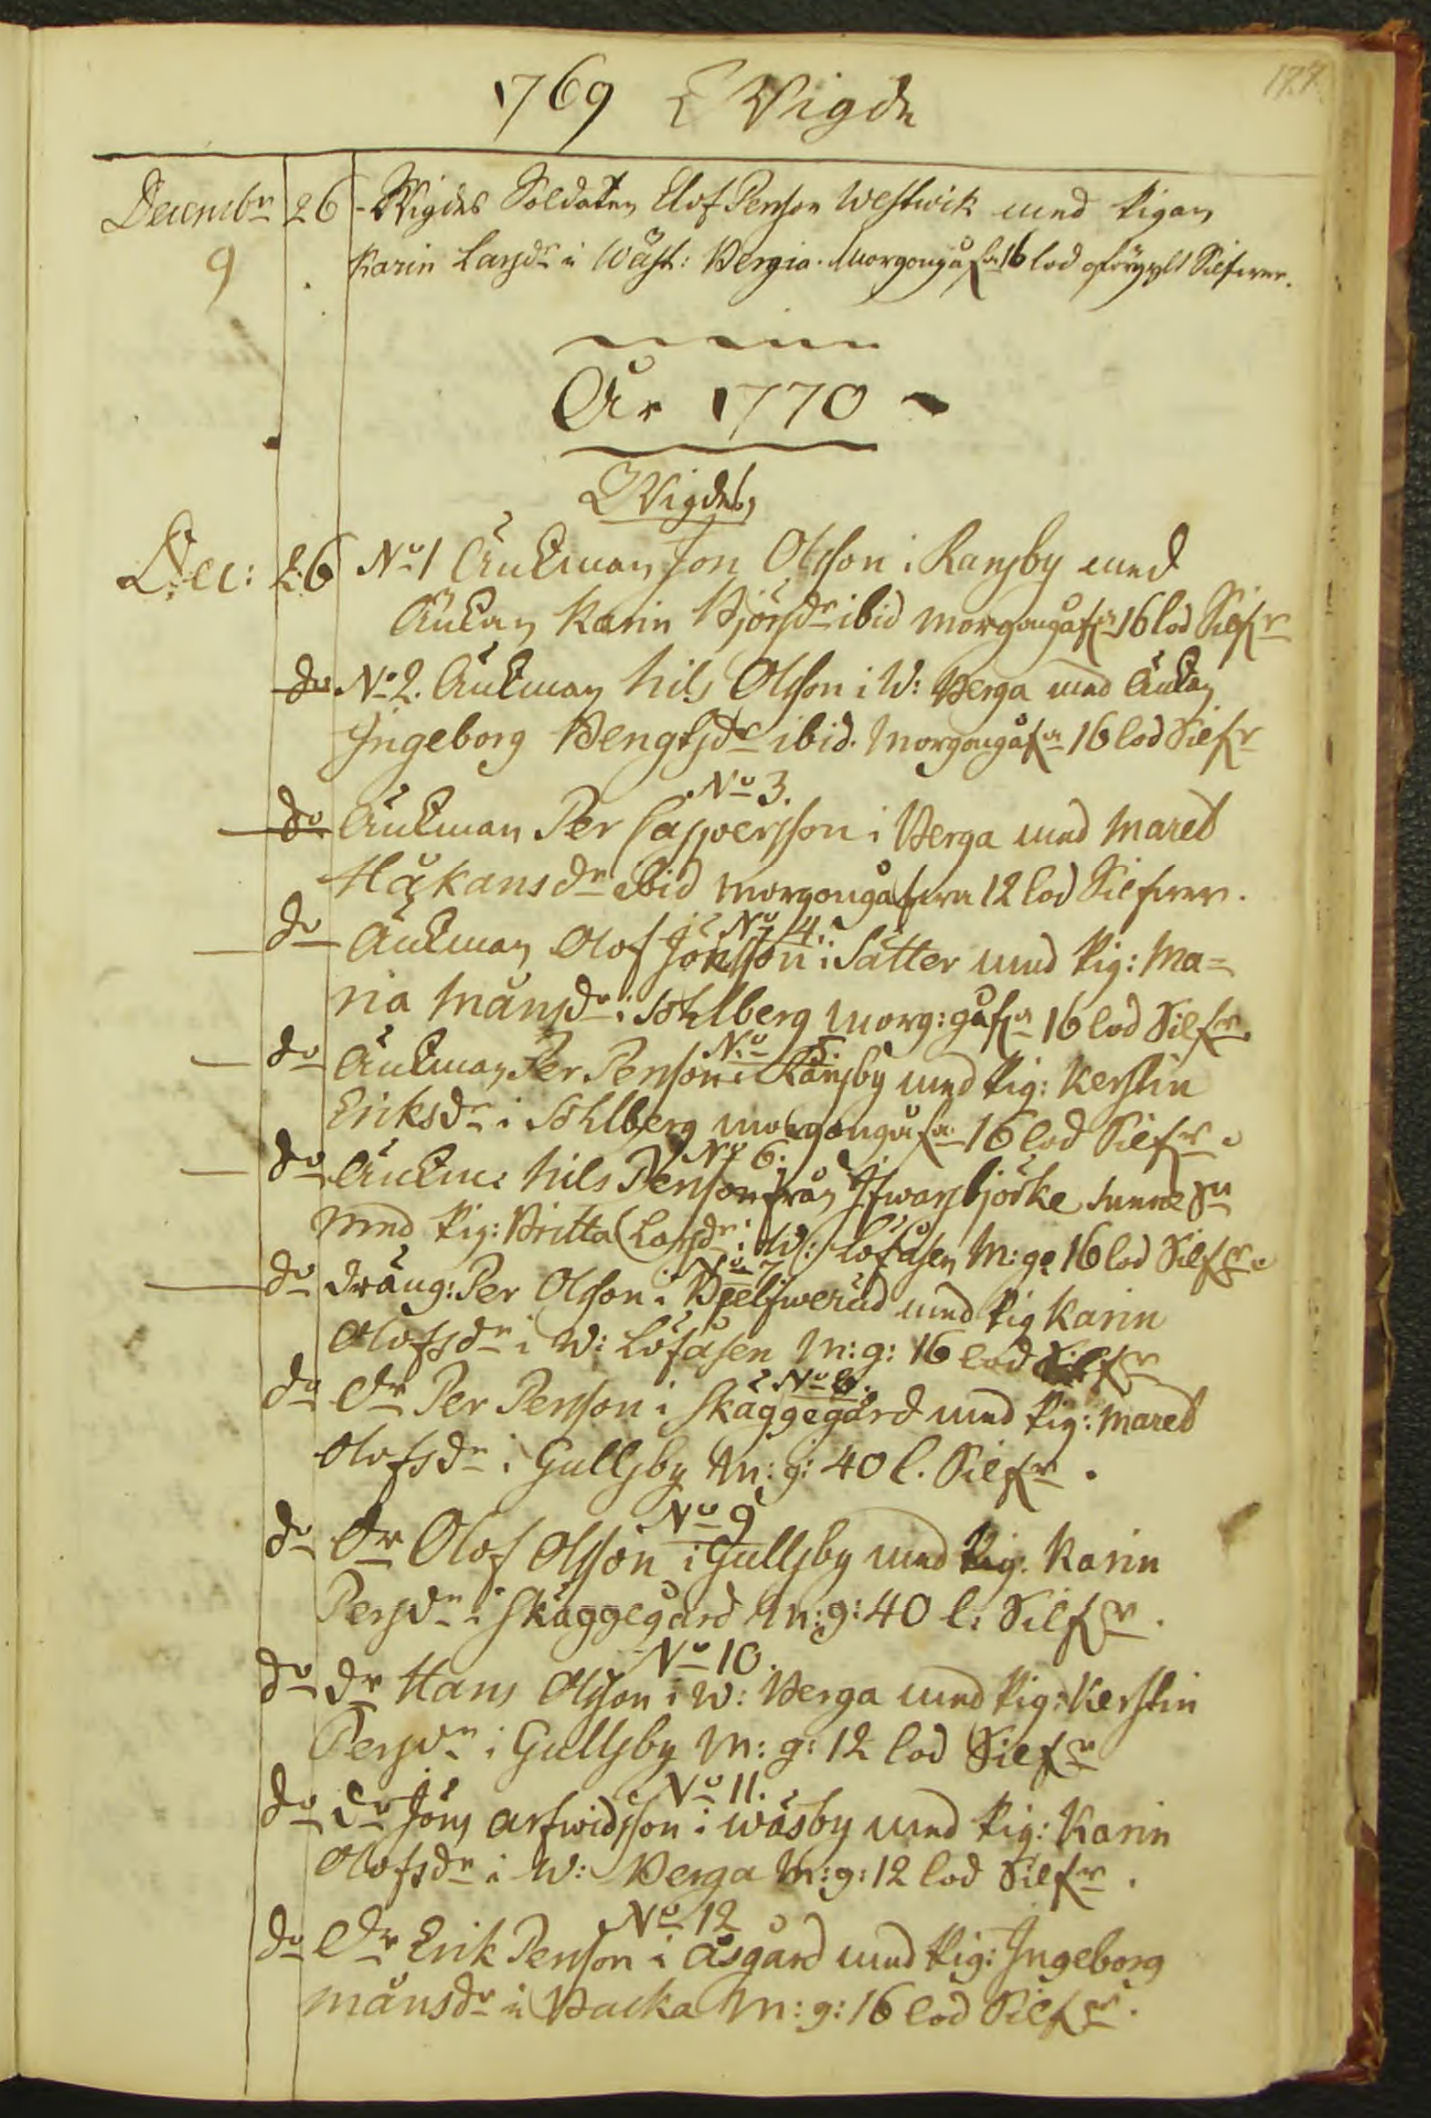 1769 Wigde
177
Decembr 26 Wigdes Soldaten Elof Person Westwik med Pigan
9 Karin Larsdr i Wäst: Bergia. Morgongåfn 16 lod oförgylt Silfwer.
År 1770
Wigdes
Dec: 26 No 1 Änkman Jon Olsson i Ransby med
Änkan Karin Björsdr ibid morgongåfn 16 lod Silfr
do No 2. Änkman Nils Olsson i W: Berga med Änkan
Ingeborg Bengtsdr ibid. Morgongåfn 16 lod Silfr
No 3.
do Änkman Per Caspersson i Berga med Maret
Håkansdr ibid morgongåfwa 12 lod Silfwer.
No 4.
do Änkman Olof Jönsson i Sätter med Pig: Ma=
ria Månsdr i Stohlberg morg:gåfn 16 lod Silfr.
No 5.
do Änkman Per Person i Ransby med Pig: Kerstin
Eriksdr i Stohlberg morgongåfn 16 lod Silfr
No 6.
do Änkm: Nils Person från Ifwarsbjörke Sunne Sn
med Pig: Britta Larsdr i W: Löfåsen M:g: 16 lod Silfr
No 7
do Dräng: Per Olsson i Bjelfwerud med Pig Karin
Olofsdr i W: Löfåsen M:g: 16 lod Silfr
No 8.
do Dr Per Person i Skäggegård med Pig: Maret
Olofsdr i Gullsby M:g: 40 l. Silfr.
No 9
do Dr Olof Olsson i Gullsby med Pig. Karin
Persdr i Skäggegård M:g: 40 l: Silfr.
No 10.
do Dr Hans Olsson i W: Berga med Pig: Kerstin
Persdr i Gullsby M:g: 12 lod Silfr
No 11.
do Dr Jöns Arfwidsson i Wäsby med Pig: Karin
Olofsdr i W: Berga M:g: 12 lod Silfr.
No 12
do Dr Erik Person i Åsgård med Pig: Ingeborg
Månsdr i Backa M:g: 16 lod Silfr.